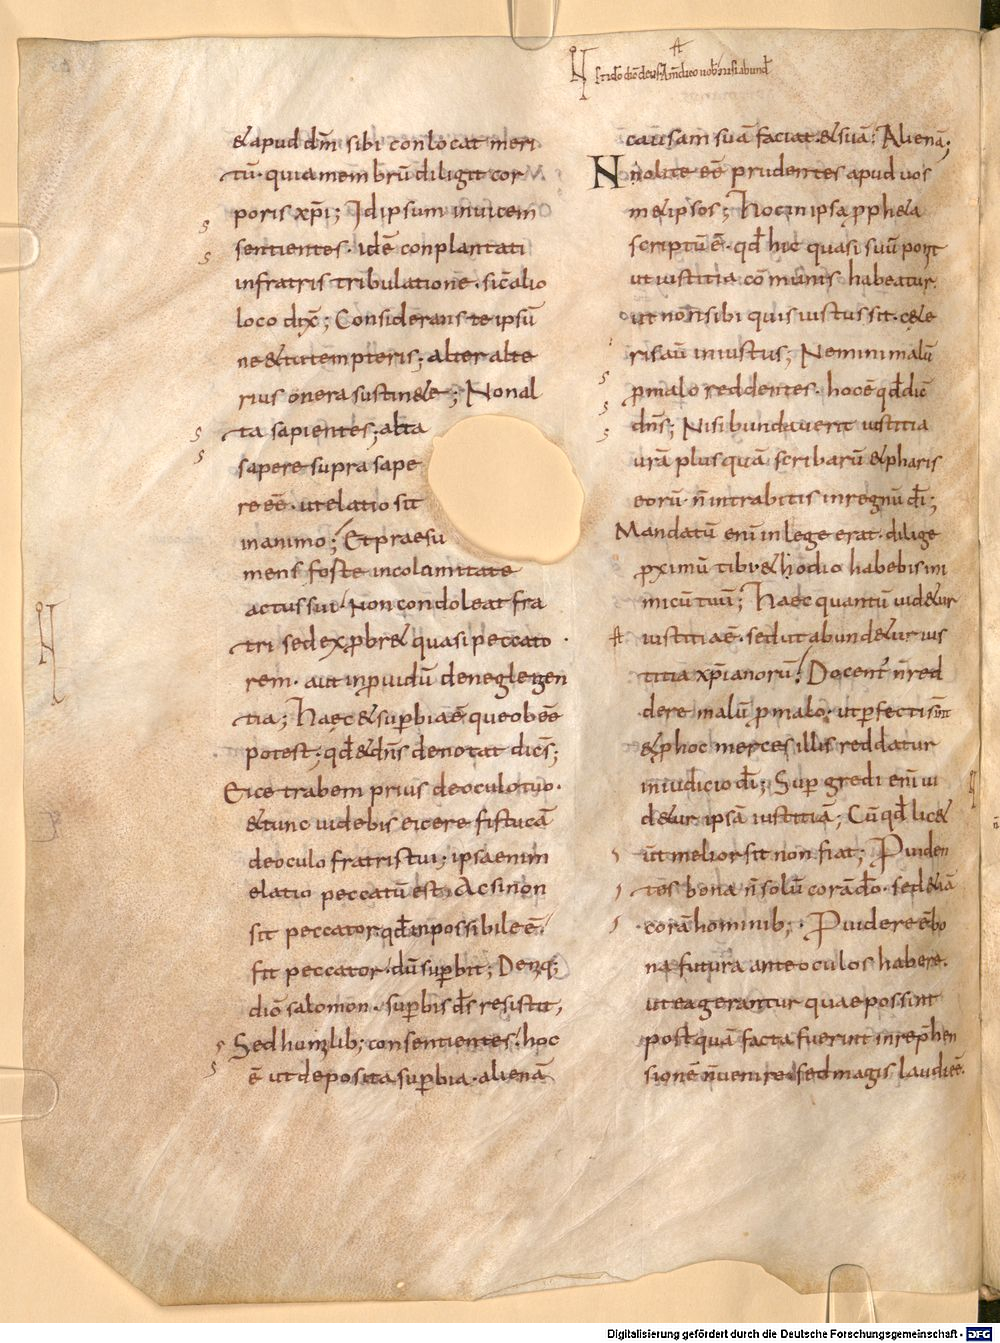 A
N
&apud dm̄ sibi conlocat meri
tū· quia membrū diligit cor
poris xp̄i; Idipsum inuicem
sentientes· idē conplantati
infratris tribulationē· sic̄ alio
loco dix̄; Considerans te ipsū
ne & tu tempteris; alter alte
rius onera sustin&e; Non al
ta sapientes; alta
sapere supra sape
re eē· ut elatio sit
in animo; Et praesu
mens foste incolumitate
actus sui· Non condoleat fra
tri sed ex ꝓbr& quasi peccato
rem· aut inꝓuidū de neglegen
tia; Haec & suꝑbia ē que obeē
potest· qđ & dn̄s denotat dicēs;
Eice trabem prius de oculo tuo·
& tunc uidebis eicere fistucā
de oculo fratris tui; ipsa enim
elatio peccatū est; Ac si non
sit peccator qđ inpossibile ē·
fit peccator· dū suꝑbit; Deniq;
dic̄ salomon· suꝑbis d̄s resistit,
Sed humilib; consentientes· hoc
ē ut deposita suꝑbia· alienā
causam suā faciat· & suā; Alienā;
Nolite eē prudentes apud uos
m&ipsos; Hoc in ipsa ꝓph&a
scriptū ē· qđ hic quasi suū ponit
ut iustitia cōmunis habeatur·
ut non sibi quis iustus sit· c&e
ris aū iniustus; Nemini malū
ꝑ malo reddentes· hoc ē qđ dic̄
dn̄s; Nisi bundauerit iustitia
urā plus quā scribarū & pharis
eorū· n̄ intrabitis in regnū d̄i;
Mandatū enī in lege erat· dilige
ꝓximū tibi & hodio habebis ini
micū tuū; Haec quantū uid&ur
iustitia ē· sed ut abund&ur ius
titia xp̄ianorū; Docent̄ n̄ red
dere malū ꝑ malo· ut ꝑfecti sint
& ꝑ hoc merces illis reddatur
in iudicio d̄i; Suꝑ gredi enī ui
d&ur ipsā iustitiā; Cū qđ lic&
ut melior sit non fiat; Puiden
tes bona n̄ solū corā d̄o· sed &iā
corā hominib; · Puidere ē bo
na futura ante oculos habere·
ut ea gerantur quae possint
postquā facta fuerint in reph̄en
sionē n̄ uenire· sed magis laudi eē·
Digitalisierung gefördert durch die Deutsche Forschungsgemeinschaft - DFG